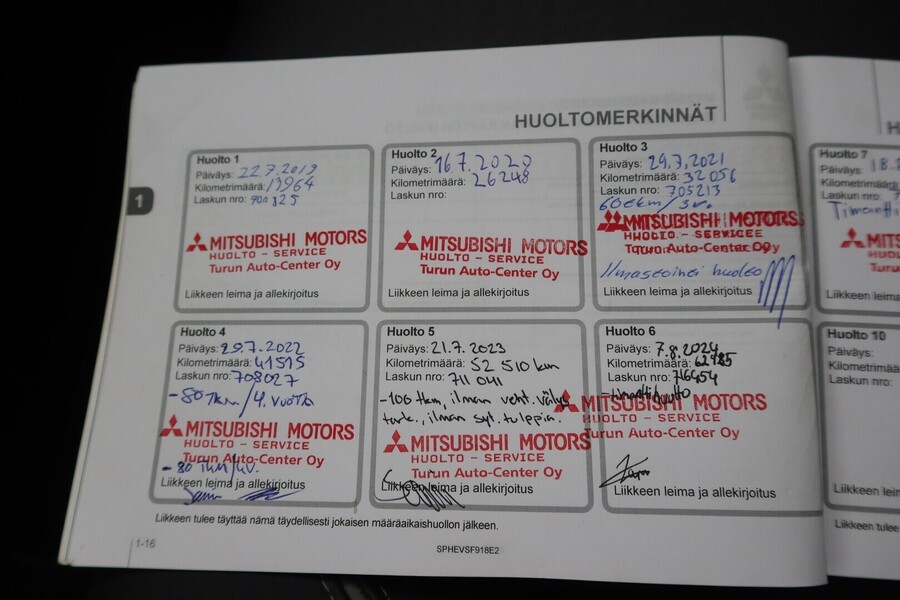 HUOLTOMERKINNÄT
1
Huolto 1
Päiväys: 22.7.2019
Kilometrimäärä: 13964
Laskun nro: 700325
MITSUBISHI MOTORS
HUOLTO - SERVICE
Turun Auto-Center Oy
Liikkeen leima ja allekirjoitus
Huolto 2
Päiväys: 16.7.2020
Kilometrimäärä: 26248
Laskun nro:
MITSUBISHI MOTORS
HUOLTO - SERVICE
Turun Auto-Center Oy
Liikkeen leima ja allekirjoitus
Huolto 3
Päiväys: 29.7.2021
Kilometrimäärä: 32056
Laskun nro: 705213
60tkm/3v.
MITSUBISHI MOTORS
HUOLTO - SERVICE
Turun Auto-Center Oy
Ilmastointi huolto
Liikkeen leima ja allekirjoitus
Huolto 4
Päiväys: 29.7.2022
Kilometrimäärä: 41595
Laskun nro: 708027
-80tkm/4.vuotta
MITSUBISHI MOTORS
HUOLTO - SERVICE
Turun Auto-Center Oy
-80tkm/4v.
Liikkeen leima ja allekirjoitus
Huolto 5
Päiväys: 21.7.2023
Kilometrimäärä: 52 510 km
Laskun nro: 711 041
-106 tkm, ilman vent. välys
tark., ilman syt. tulppia.
MITSUBISHI MOTORS
HUOLTO - SERVICE
Turun Auto-Center Oy
Liikkeen leima ja allekirjoitus
Huolto 6
Päiväys: 7.8.2024
Kilometrimäärä: 62985
Laskun nro: 716454
MITSUBISHI MOTORS
HUOLTO - SERVICE
Turun Auto-Center Oy
Liikkeen leima ja allekirjoitus
Huolto 7
Päiväys: 18.
Kilometrimäärä
Laskun nro:
MITS
HUO
Turun
Liikkeen leima
Huolto 10
Päiväys:
Kilometrimäärä
Laskun nro:
Liikkeen leima
Liikkeen tulee täyttää nämä täydellisesti jokaisen määräaikaishuollon jälkeen.
Liikkeen tulee
1-16
SPHEVSF918E2